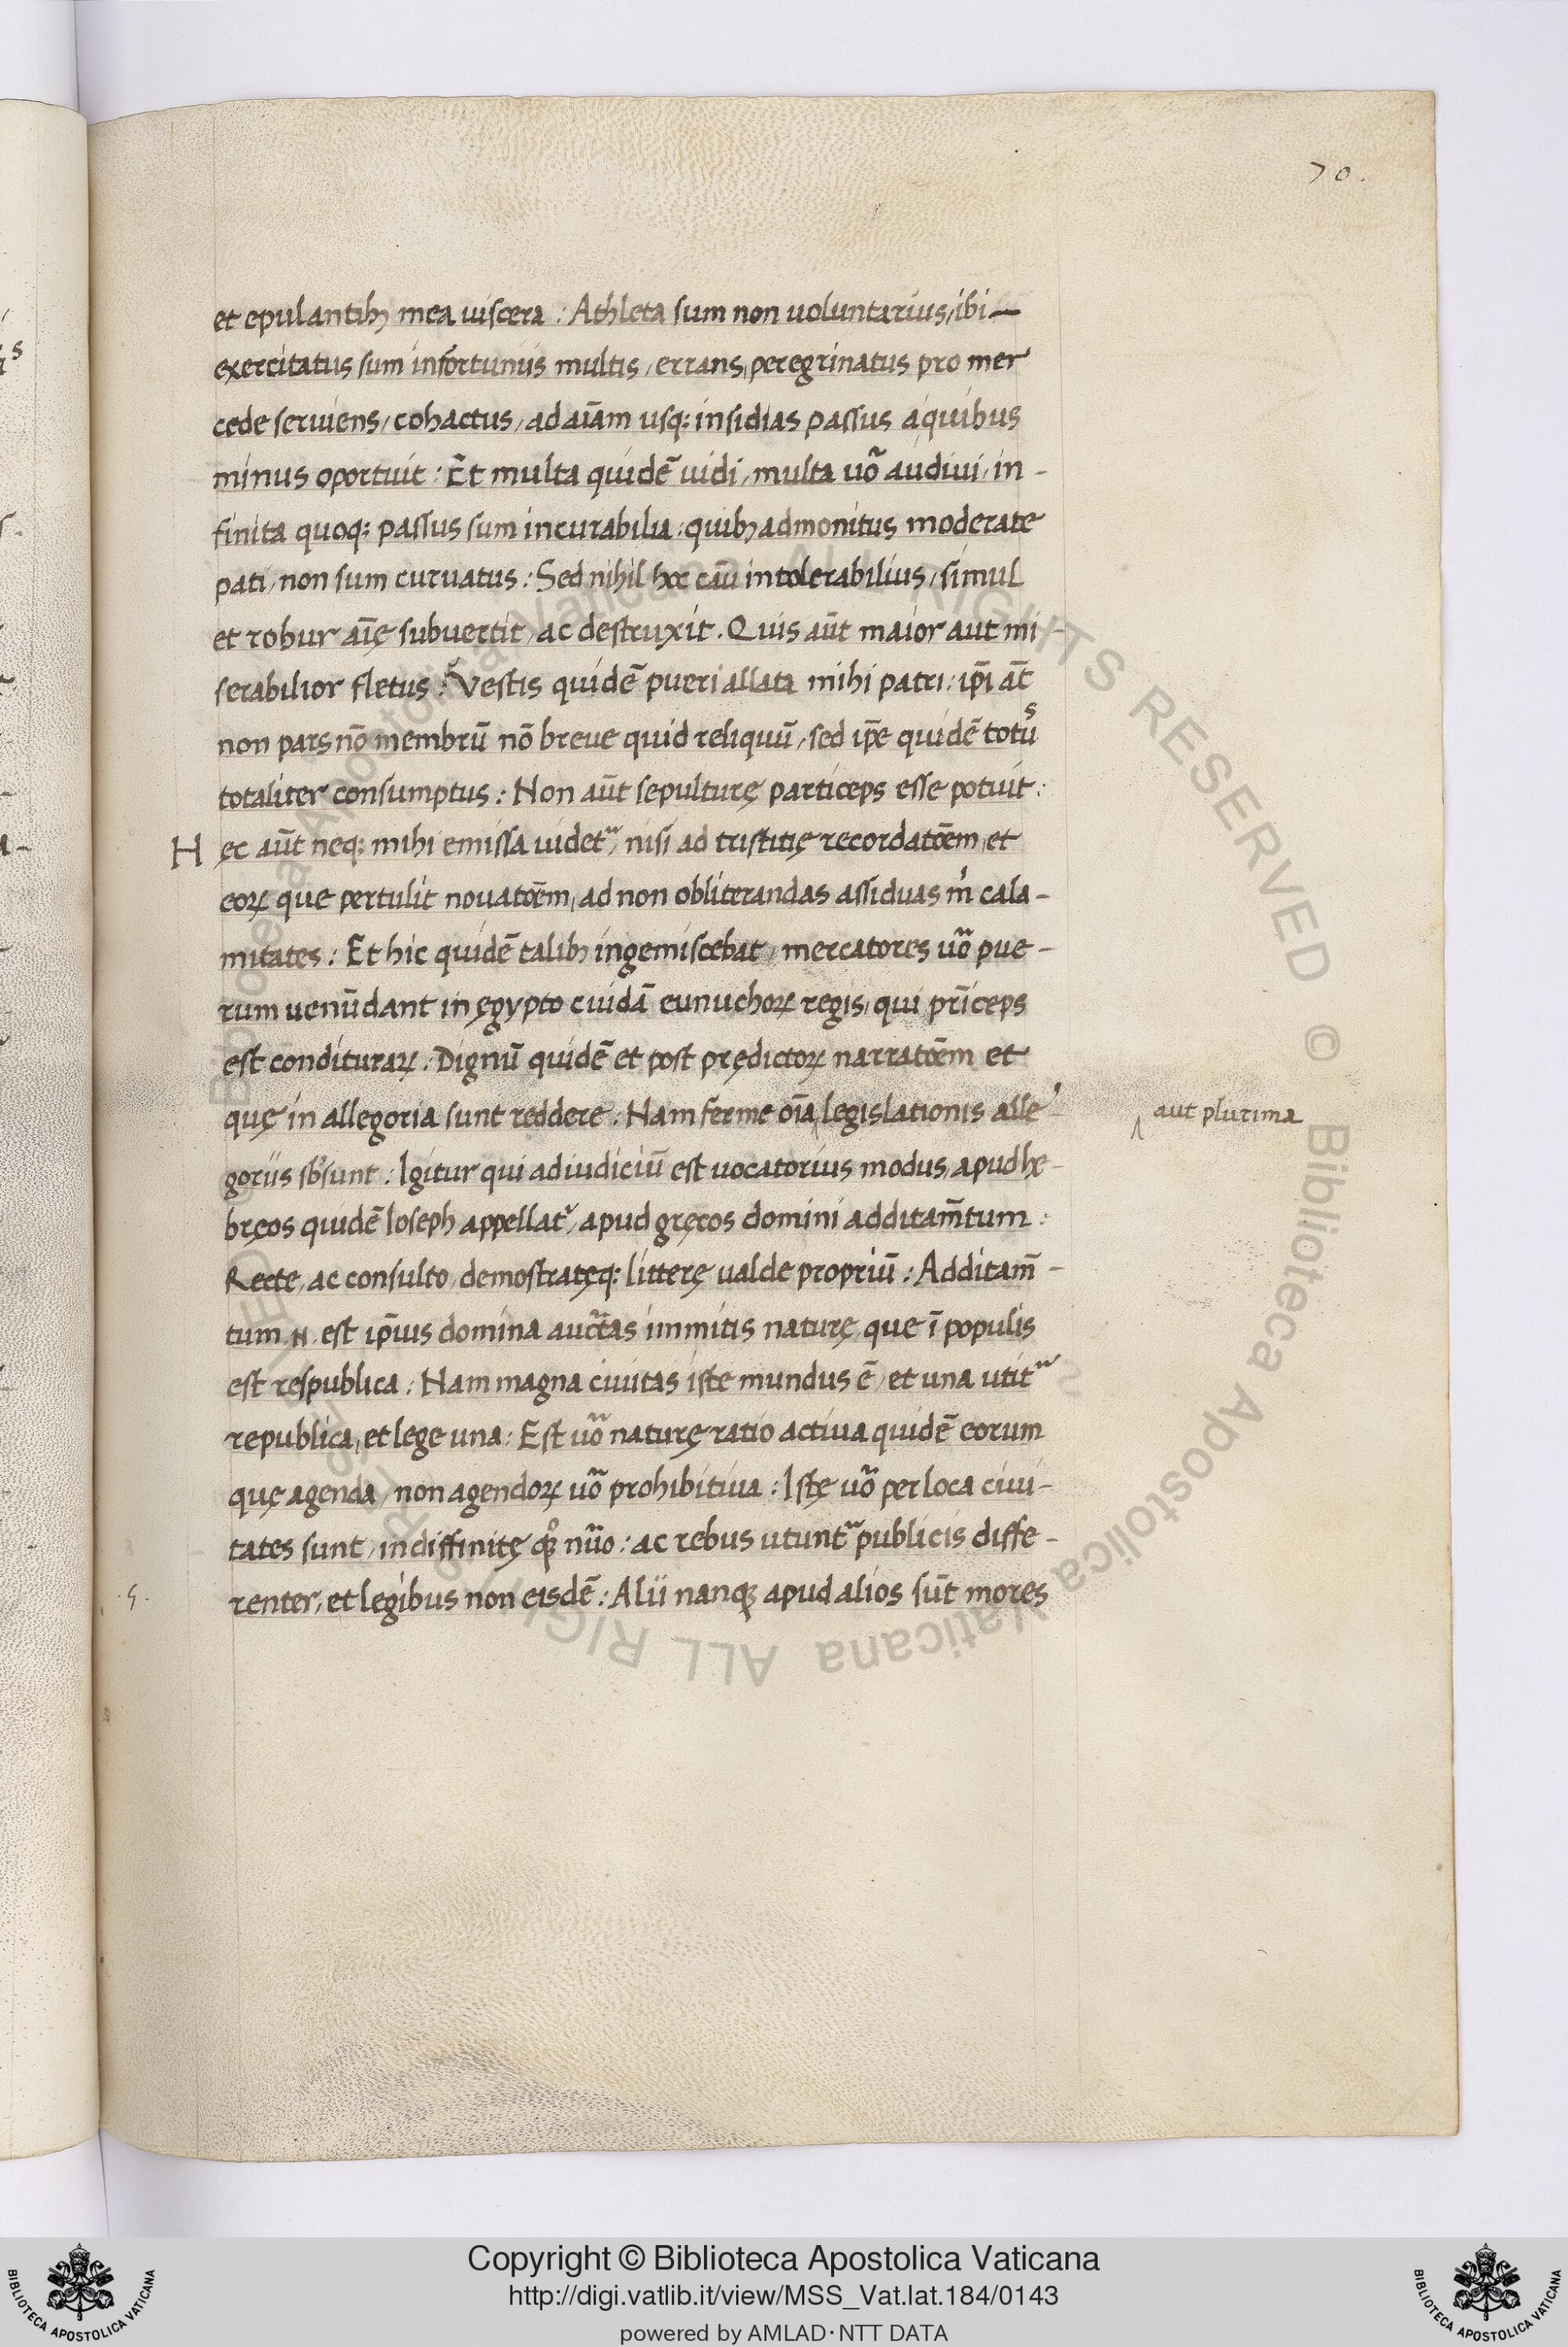 70.
et epulantibȝ mea uiscera : Athleta sum non uoluntarius, ibi —
exercitatus sum infortuniis multis, errans, peregrinatus pro mer
cede seruiens, cohactus, ad aīam usq; insidias passus a quibus
minus oportuit : Et multa quidē uidi, multa uo᷉ audiui, in -
finita quoq; passus sum incurabilia : quibȝ admonitus moderate
pati, non sum curuatus : Sed nihil hoc caū intolerabilius, simul
et robur aīę subuertit, ac destruxit. Quis aūt maior aut mi -
serabilior fletus : Vestis quidē pueri allata mihi patri : ip̄i āt
non pars nō membrū nō breue quid reliquū, sed ip̄e quidē totus
totaliter consumptus : Non aūt sepulturę particeps esse potuit :
Hęc aūt neq; mihi emissa uidetᷣ, nisi ad tristitię recordatōem, et
eoꝝ que pertulit nouatōem, ad non obliterandas assiduas m̓ cala -
mitates : Et hic quidē talibȝ ingemiscebat, mercatores uo᷉ pue -
rum uenūdant in ęgypto cuidā eunuchoꝝ regis, qui prīceps
est condituraꝝ : Dignū quidē et post prędictoꝝ narratōem et
quę in allegoria sunt reddere : Nam ferme oīa ‸ legislationis alle -
‸ aut plurima
goriis sb̓sunt : Igitur qui ad iudiciū est uocatorius modus, apud he -
bręos quidē Ioseph appellatᷣ, apud gręcos domini additam̄tum :
Recte, ac consulto, demostratęq; litterę ualde propriū : Additam̄ -
tum .N. est ip̄ius domina auct̄as immitis naturę, que ī populis
est respublica : Nam magna ciuitas iste mundus ē, et una utitᷣ
republica, et lege una : Est uo᷉ naturę ratio actiua quidē eorum
quę agenda, non agendoꝝ uo᷉ prohibitiua : Istę uo᷉ per loca ciui -
tates sunt, indiffinitę nūo : ac rebus utuntᷣ publicis diffe -
renter, et legibus non eisdē : Alii nanqꝫ apud alios sūt mores
Copyright © Biblioteca Apostolica Vaticana
http://digi.vatlib.it/view/MSS_Vat.lat.184/0143
powered by AMLAD·NTT DATA